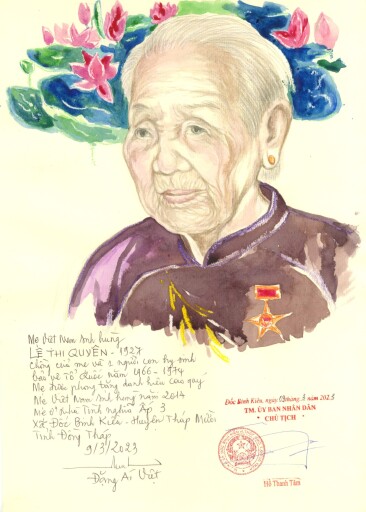 Mẹ Việt Nam Anh hùng
LÊ THỊ QUYÊN - 1927
Chồng của mẹ và 1 người con hy sinh
bảo vệ Tổ Quốc năm 1966 - 1974
Mẹ được phong tặng danh hiệu cao quý
Mẹ Việt Nam Anh hùng năm 2014
Mẹ ở Nhà Tình nghĩa ấp 3
Xã Đốc Binh Kiều - Huyện Tháp Mười
Tỉnh Đồng Tháp
9/3/2023
Đặng Ái Việt
Đốc Binh Kiều, ngày tháng 3 năm 2023
TM. ỦY BAN NHÂN DÂN
CHỦ TỊCH
Hồ Thanh Tâm